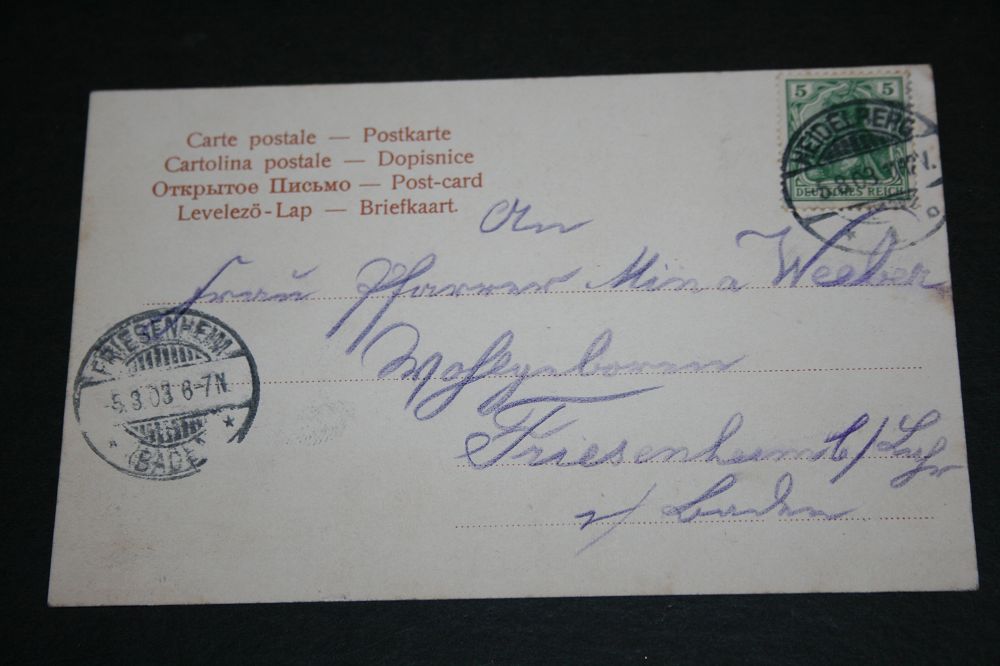 5 5
DEUTSCHES REICH
HEIDELBERG
Carte postale — Postkarte
Cartolina postale — Dopisnice
Открытое Письмо — Post-card
Levelező-Lap — Briefkaart.
An
Frau Pfarrer Mina Weeber
Wohlgeboren
Friesenheim b/Lahr
i/ Baden
FRIESENHEIM
5.3.03 6-7N
(BADEN)